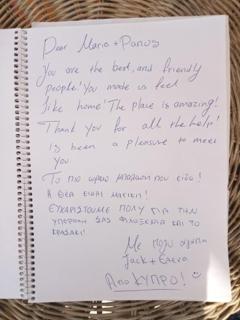 Dear Maria + Panos
You are the best, and friendly
people! You made us feel
like home! The place is amazing!
Thank you for all the help!
is been a pleasure to meet
you
Το πιο ωραίο μπαλκόνι που είδα!
Η θέα είναι μαγική!
ΕΥΧΑΡΙΣΤΟΥΜΕ ΠΟΛΥ ΓΙΑ ΤΗΝ
ΥΠΕΡΟΧΗ ΣΑΣ ΦΙΛΟΞΕΝΙΑ ΚΑΙ ΤΟ
ΚΡΑΣΑΚΙ!
Με πολυ αγάπη
Jack + Έλενα
Απο ΚΥΠΡΟ!